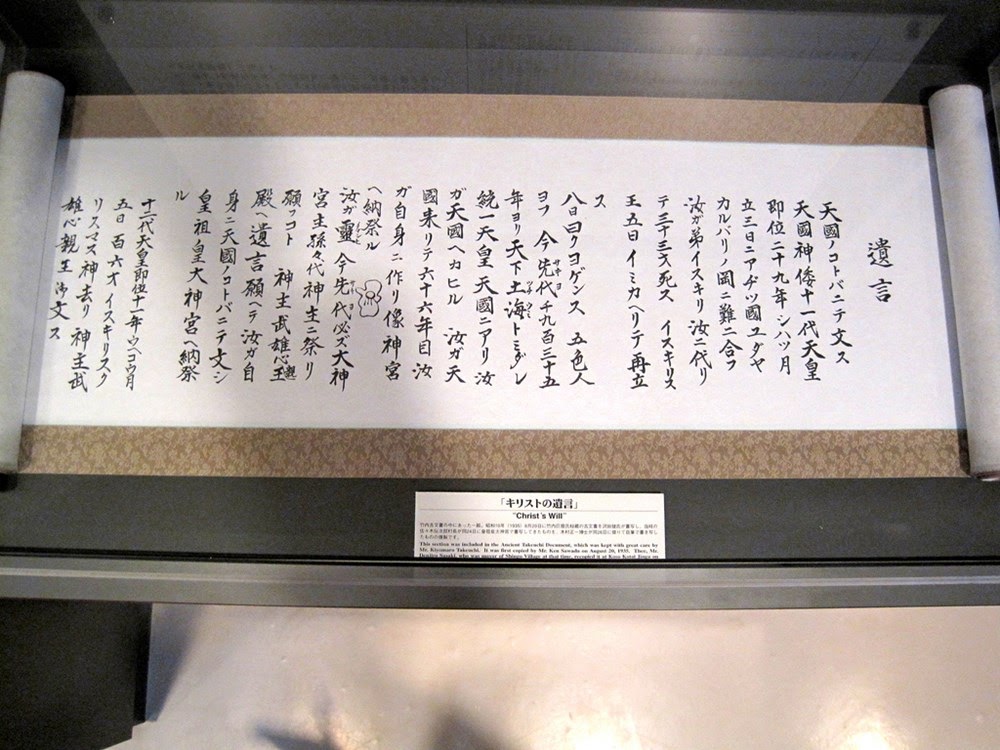 遺言
天國ノコトバニテ文ス
天國神倭十一代天皇
即位二十九年シハツ月
立三日ニアヂツ國ユダヤ
カルバリノ岡ニ難ニ合フ
汝ガ弟イスキリ汝ニ代リ
テ三十三才死ス イスキリス
王五日イミカヘリテ再立
ス
八日曰クヨゲンス 五色人
ヨフ 今先代千九百三十五
年ヨリ天下土海トミダレ
統一天皇天國ニアリ汝
ガ天國ヘカヒル 汝ガ天
國来リテ六十六年目汝
ガ自身ニ作リ像神宮
ヘ納祭ル
汝ガ靈今先代必ズ大神
宮主孫々代神主ニ祭リ
願フコト 神主武雄心
殿ヘ遺言願ヘテ汝ガ自
身ニ天國ノコトバニテ文シ
皇祖皇大神宮ヘ納祭
ル
十二代天皇即位十一年
五日 百六才 イスキリスク
リスマス神去リ 神主武
雄心親王 御文ス
「キリストの遺言」
"Christ's Will"
This section was included in the Ancient Takeuchi Document, which was kept with great care by
Mr. Kiyomaro Takeuchi. It was first copied by Mr. Ken Sawada on August 20, 1935. Then, Mr.
Sasaki, who was mayor of Shingo Village at that time, recopied it at Koso Kotai Jingu on